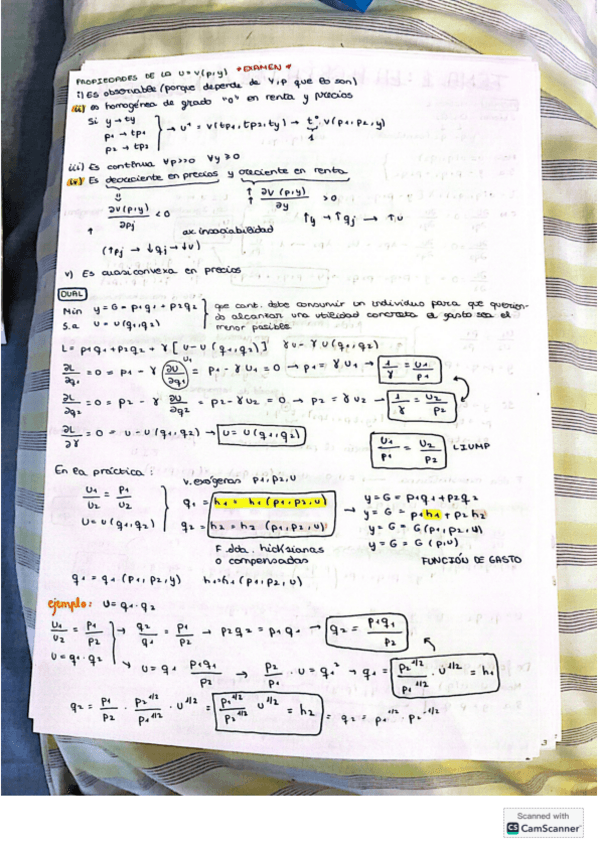 PROPIEDADES DE LA U = V(p,y) *EXAMEN*
i) Es observable (porque depende de y,p que lo son)
(ii) es homogénea de grado "0" en renta y precios
Si y → ty
p1 → tp1
p2 → tp2
→ u* = v(tp1, tp2, ty) → t⁰ · v(p1, p2, y)
1
iii) Es continua ∀p>>0 ∀y≥0
(iv) Es decreciente en precios y creciente en renta
∂v(p,y)/∂pj < 0
↑ ∂V(p,y) / ↑ ∂y > 0
↑y → ↑qj → ↑u
ax. insaciabilidad
(↑pj → ↓qj → ↓u)
v) Es cuasiconvexa en precios
DUAL
Min y = G = p1q1 + p2q2
s.a U = U(q1,q2)
que cant. debe consumir un individuo para que querien-
do alcanzar una utilidad concreta el gasto sea el
menor posible.
L = p1q1 + p2q2 + γ[u - u(q1,q2)] γu - γU(q1,q2)
∂L/∂q1 = 0 = p1 - γ ∂U/∂q1 = p1 - γU1 = 0 → p1 = γU1 → 1/γ = U1/p1
U1
∂L/∂q2 = 0 = p2 - γ ∂U/∂q2 = p2 - γU2 = 0 → p2 = γU2 → 1/γ = U2/p2
∂L/∂γ = 0 = u - u(q1,q2) → U = U(q1,q2)
U1/p1 = U2/p2 LIUMP
En la práctica:
V. exógenas p1, p2, u
U1/U2 = p1/p2
U = U(q1,q2)
q1 = h1 = h1(p1,p2,u)
q2 = h2 = h2(p1,p2,u)
→ y = G = p1q1 + p2q2
y = G = p1h1 + p2h2
y = G = G(p1,p2,u)
y = G = G(p,u)
F. dda. hicksianas
o compensadas
FUNCIÓN DE GASTO
q1 = q1(p1,p2,y) h1=h1(p1,p2,u)
ejemplo: U = q1·q2
U1/U2 = p1/p2
U = q1·q2
→ q2/q1 = p1/p2 → p2q2 = p1q1 → q2 = p1q1/p2
→ U = q1 p1q1/p2 → p2/p1 · U = q1² → q1 = p2^1/2/p1^1/2 · U^1/2 = h1
q2 = p1/p2 · p2^1/2/p1^1/2 · U^1/2 = p1^1/2/p2^1/2 U^1/2 = h2 = q2 = p1^1/2 · p2^-1/2
3
Scanned with
CS CamScanner